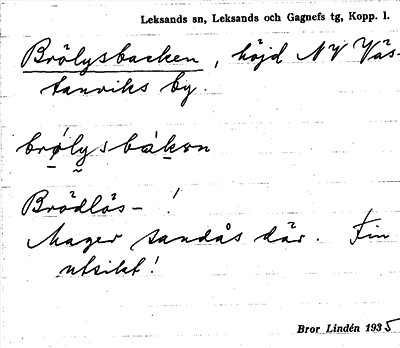 Leksands sn, Leksands och Gagnefs tg, Kopp. l.
Brölysbacken, höjd NV Väs-
tanviks by.
brölysbàkən
Brödlös- !
Mager sandås där. Fin
utsikt!
Bror Lindén 1935